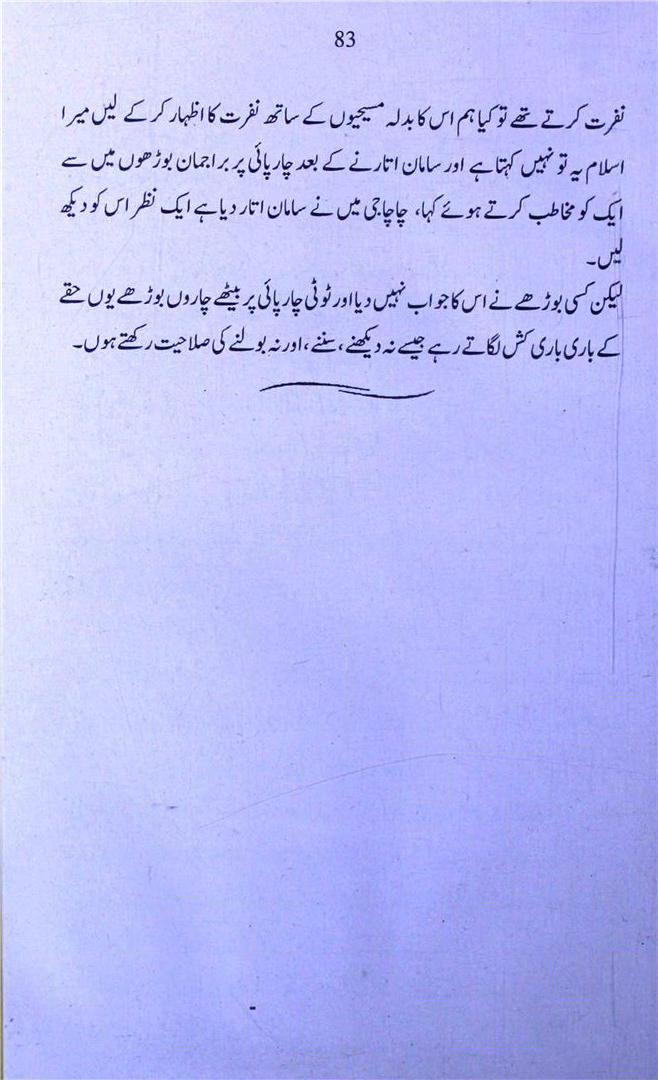 83
نفرت کرتے تھے تو کیا ہم اس کا بدلہ مسیحیوں کے ساتھ نفرت کا اظہار کر کے لیں میرا
اسلام یہ تو نہیں کہتا ہے اور سامان اتارنے کے بعد چارپائی پر براجمان بوڑھوں میں سے
ایک کو مخاطب کرتے ہوئے کہا، چاچا جی میں نے سامان اتار دیا ہے ایک نظر اس کو دیکھ
لیں۔
لیکن کسی بوڑھے نے اس کا جواب نہیں دیا اور ٹوٹی چارپائی پر بیٹھے چاروں بوڑھے یوں حقے
کے باری باری کش لگاتے رہے جیسے نہ دیکھنے، سننے، اور نہ بولنے کی صلاحیت رکھتے ہوں۔